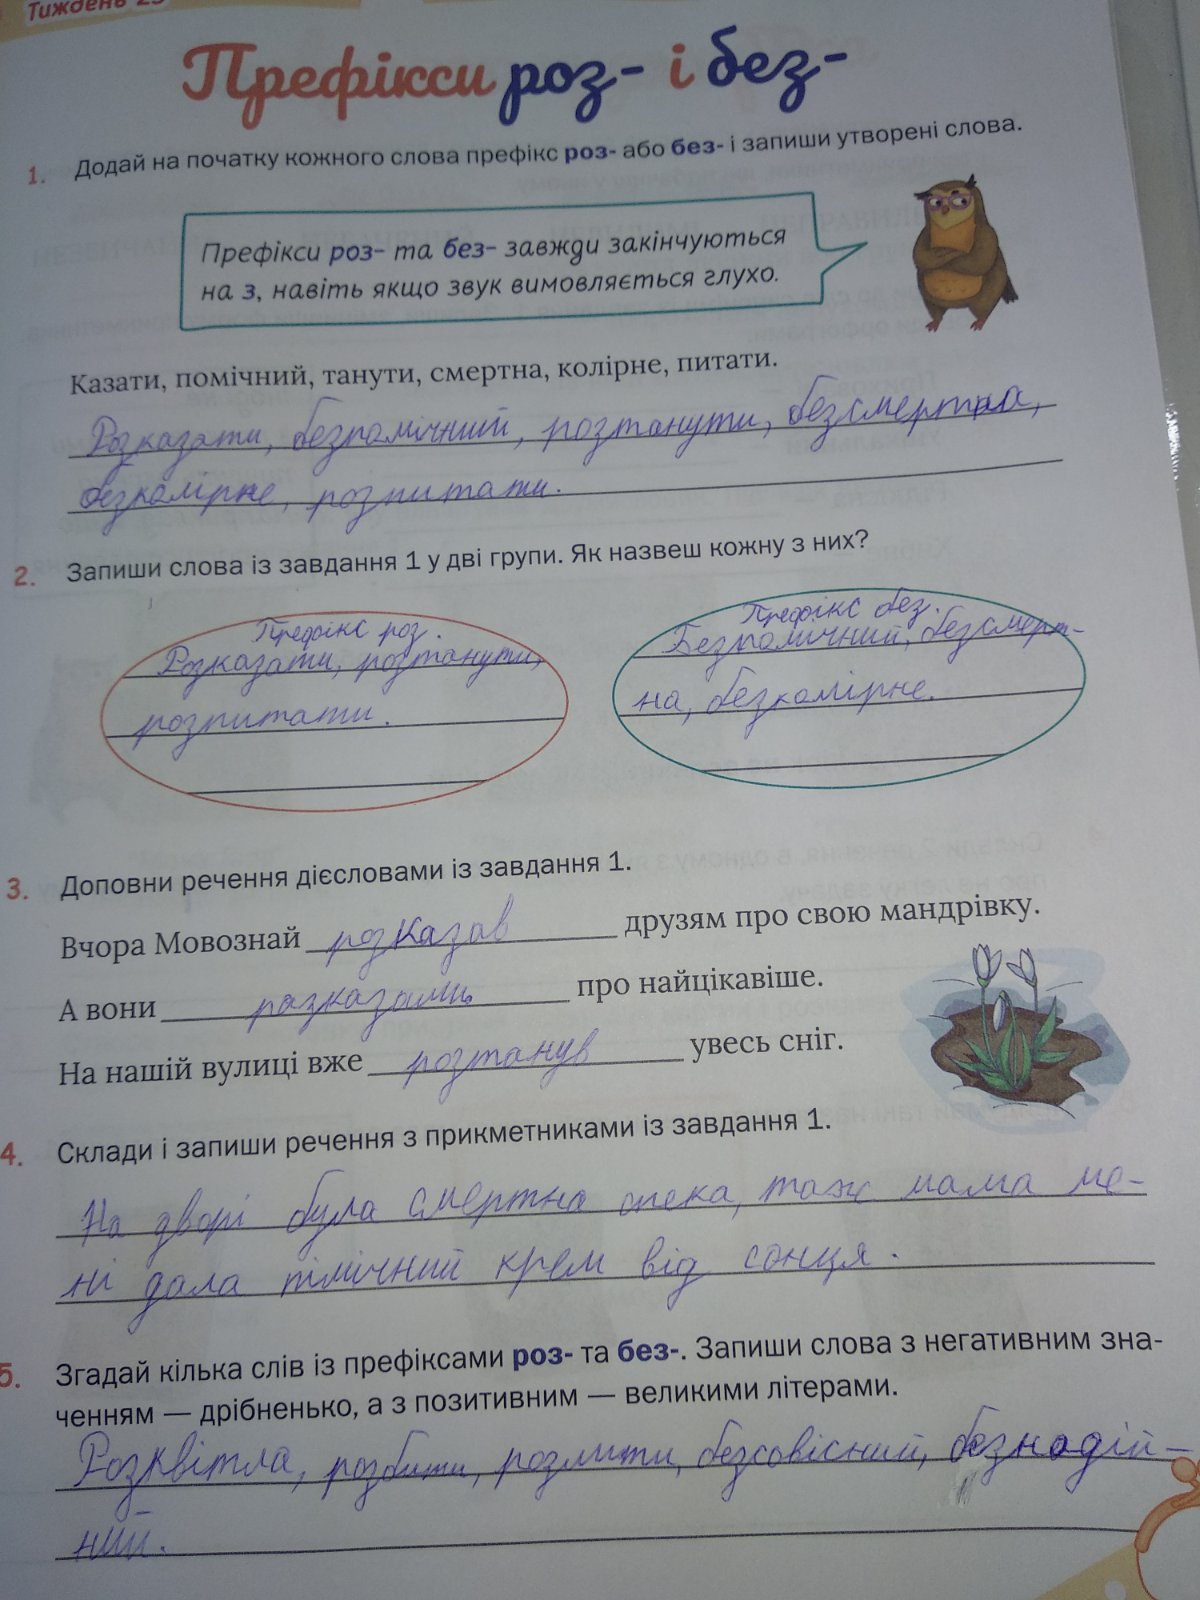 Тиждень 23
Префікси роз- і без-
1. Додай на початку кожного слова префікс роз- або без- і запиши утворені слова.
Префікси роз- та без- завжди закінчуються
на з, навіть якщо звук вимовляється глухо.
Казати, помічний, танути, смертна, колірне, питати.
Розказати, безпомічний, розтанути, безсмертна,
безколірне, розпитати.
2. Запиши слова із завдання 1 у дві групи. Як назвеш кожну з них?
Префікс роз.
Розказати, розтанути,
розпитати.
Префікс без.
Безпомічний, безсмерт-
на, безколірне.
3. Доповни речення дієсловами із завдання 1.
Вчора Мовознай розказав друзям про свою мандрівку.
А вони про найцікавіше.
На нашій вулиці вже розтанув увесь сніг.
4. Склади і запиши речення з прикметниками із завдання 1.
На дворі була смертна спека, тож мама ме-
ні дала крем від сонця.
5. Згадай кілька слів із префіксами роз- та без-. Запиши слова з негативним зна-
ченням — дрібненько, а з позитивним — великими літерами.
Розквітла, розбити, розлити, безсовісний, безнадій-
ний.